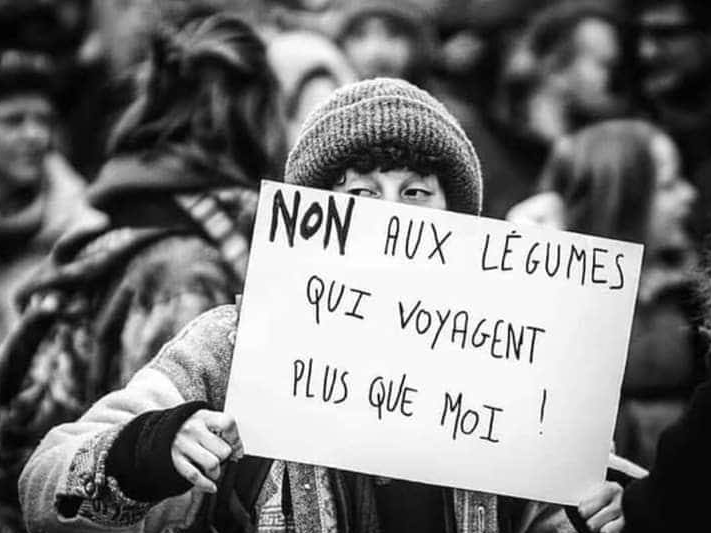 NON AUX LÉGUMES
QUI VOYAGENT
PLUS QUE MOI !